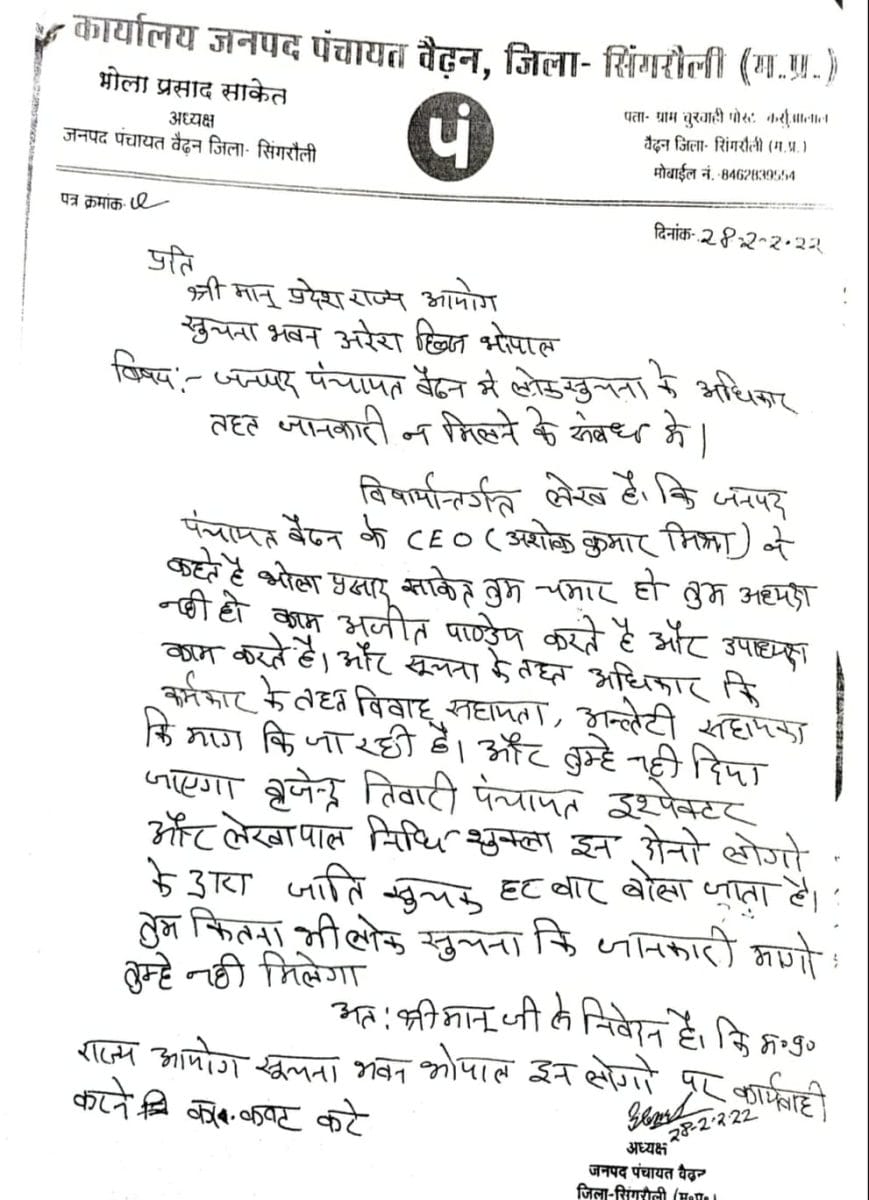 कार्यालय जनपद पंचायत वैढ़न, जिला- सिंगरौली (म.प्र.)
भोला प्रसाद साकेत
अध्यक्ष
जनपद पंचायत वैढ़न जिला- सिंगरौली
पं
पता- ग्राम चुरवाही पोस्ट
वैढ़न जिला- सिंगरौली (म.प्र.)
मोबाईल नं.-8462839554
पत्र क्रमांक-
दिनांक-28-2-2.22
प्रति
श्री मान् प्रदेश राज्य आयोग
सुचना भवन अरेरा हिल्ज भोपाल
विषय:- जनपद पंचायत वैढन मे लोकसुचना के अधिकार
तहत जानकारी न मिलने के संबध मे |
विषार्यान्तर्गत लेख है। कि जनपद
पंचायत वैढन के CEO (अशोक कुमार मिश्रा) ने
कहते है भोला प्रसाद साकेत तुम चमार हो तुम अध्यक्ष
नही हो काम अजीत पाण्डेय करते है और उपाध्यक्ष
काम करते है। और सूचना के तहत अधिकार कि
कर्मकार के तहत विवाह सहायता, अन्तेटी सहायता
कि माग कि जा रही है। और तुम्हे नही दिया
जाएगा बृजेन्द्र तिवारी पंचायत इंस्पेक्टर
और लेखापाल निधि शुक्ला इन दोनो लोगो
के द्वारा जाति सुचक हर बार बोला जाता है।
तुम कितना भी लोक सुचना कि जानकारी मागो
तुम्हे नही मिलेगा
अत: श्रीमान् जी से निवेदन है। कि म०प्र०
राज्य आयोग सूचना भवन भोपाल इन लोगो पर कार्यवाही
करने कष्ट करे
28-2-2.22
अध्यक्ष
जनपद पंचायत वैढ़न
जिला-सिंगरौली (म.प्र.)